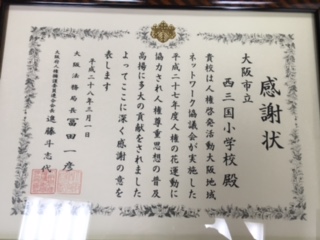 感謝状
大阪市立
西三国小学校殿
貴校は人権啓発活動大阪地域
ネットワーク協議会が実施した
平成二十七年度人権の花運動に
協力され人権尊重思想の普及
高揚に多大の貢献をされました
よってここに深く感謝の意を
表します
平成二十八年三月一日
大阪法務局長 冨田一彦
大阪府人権擁護委員連合会会長 遠藤斗志代